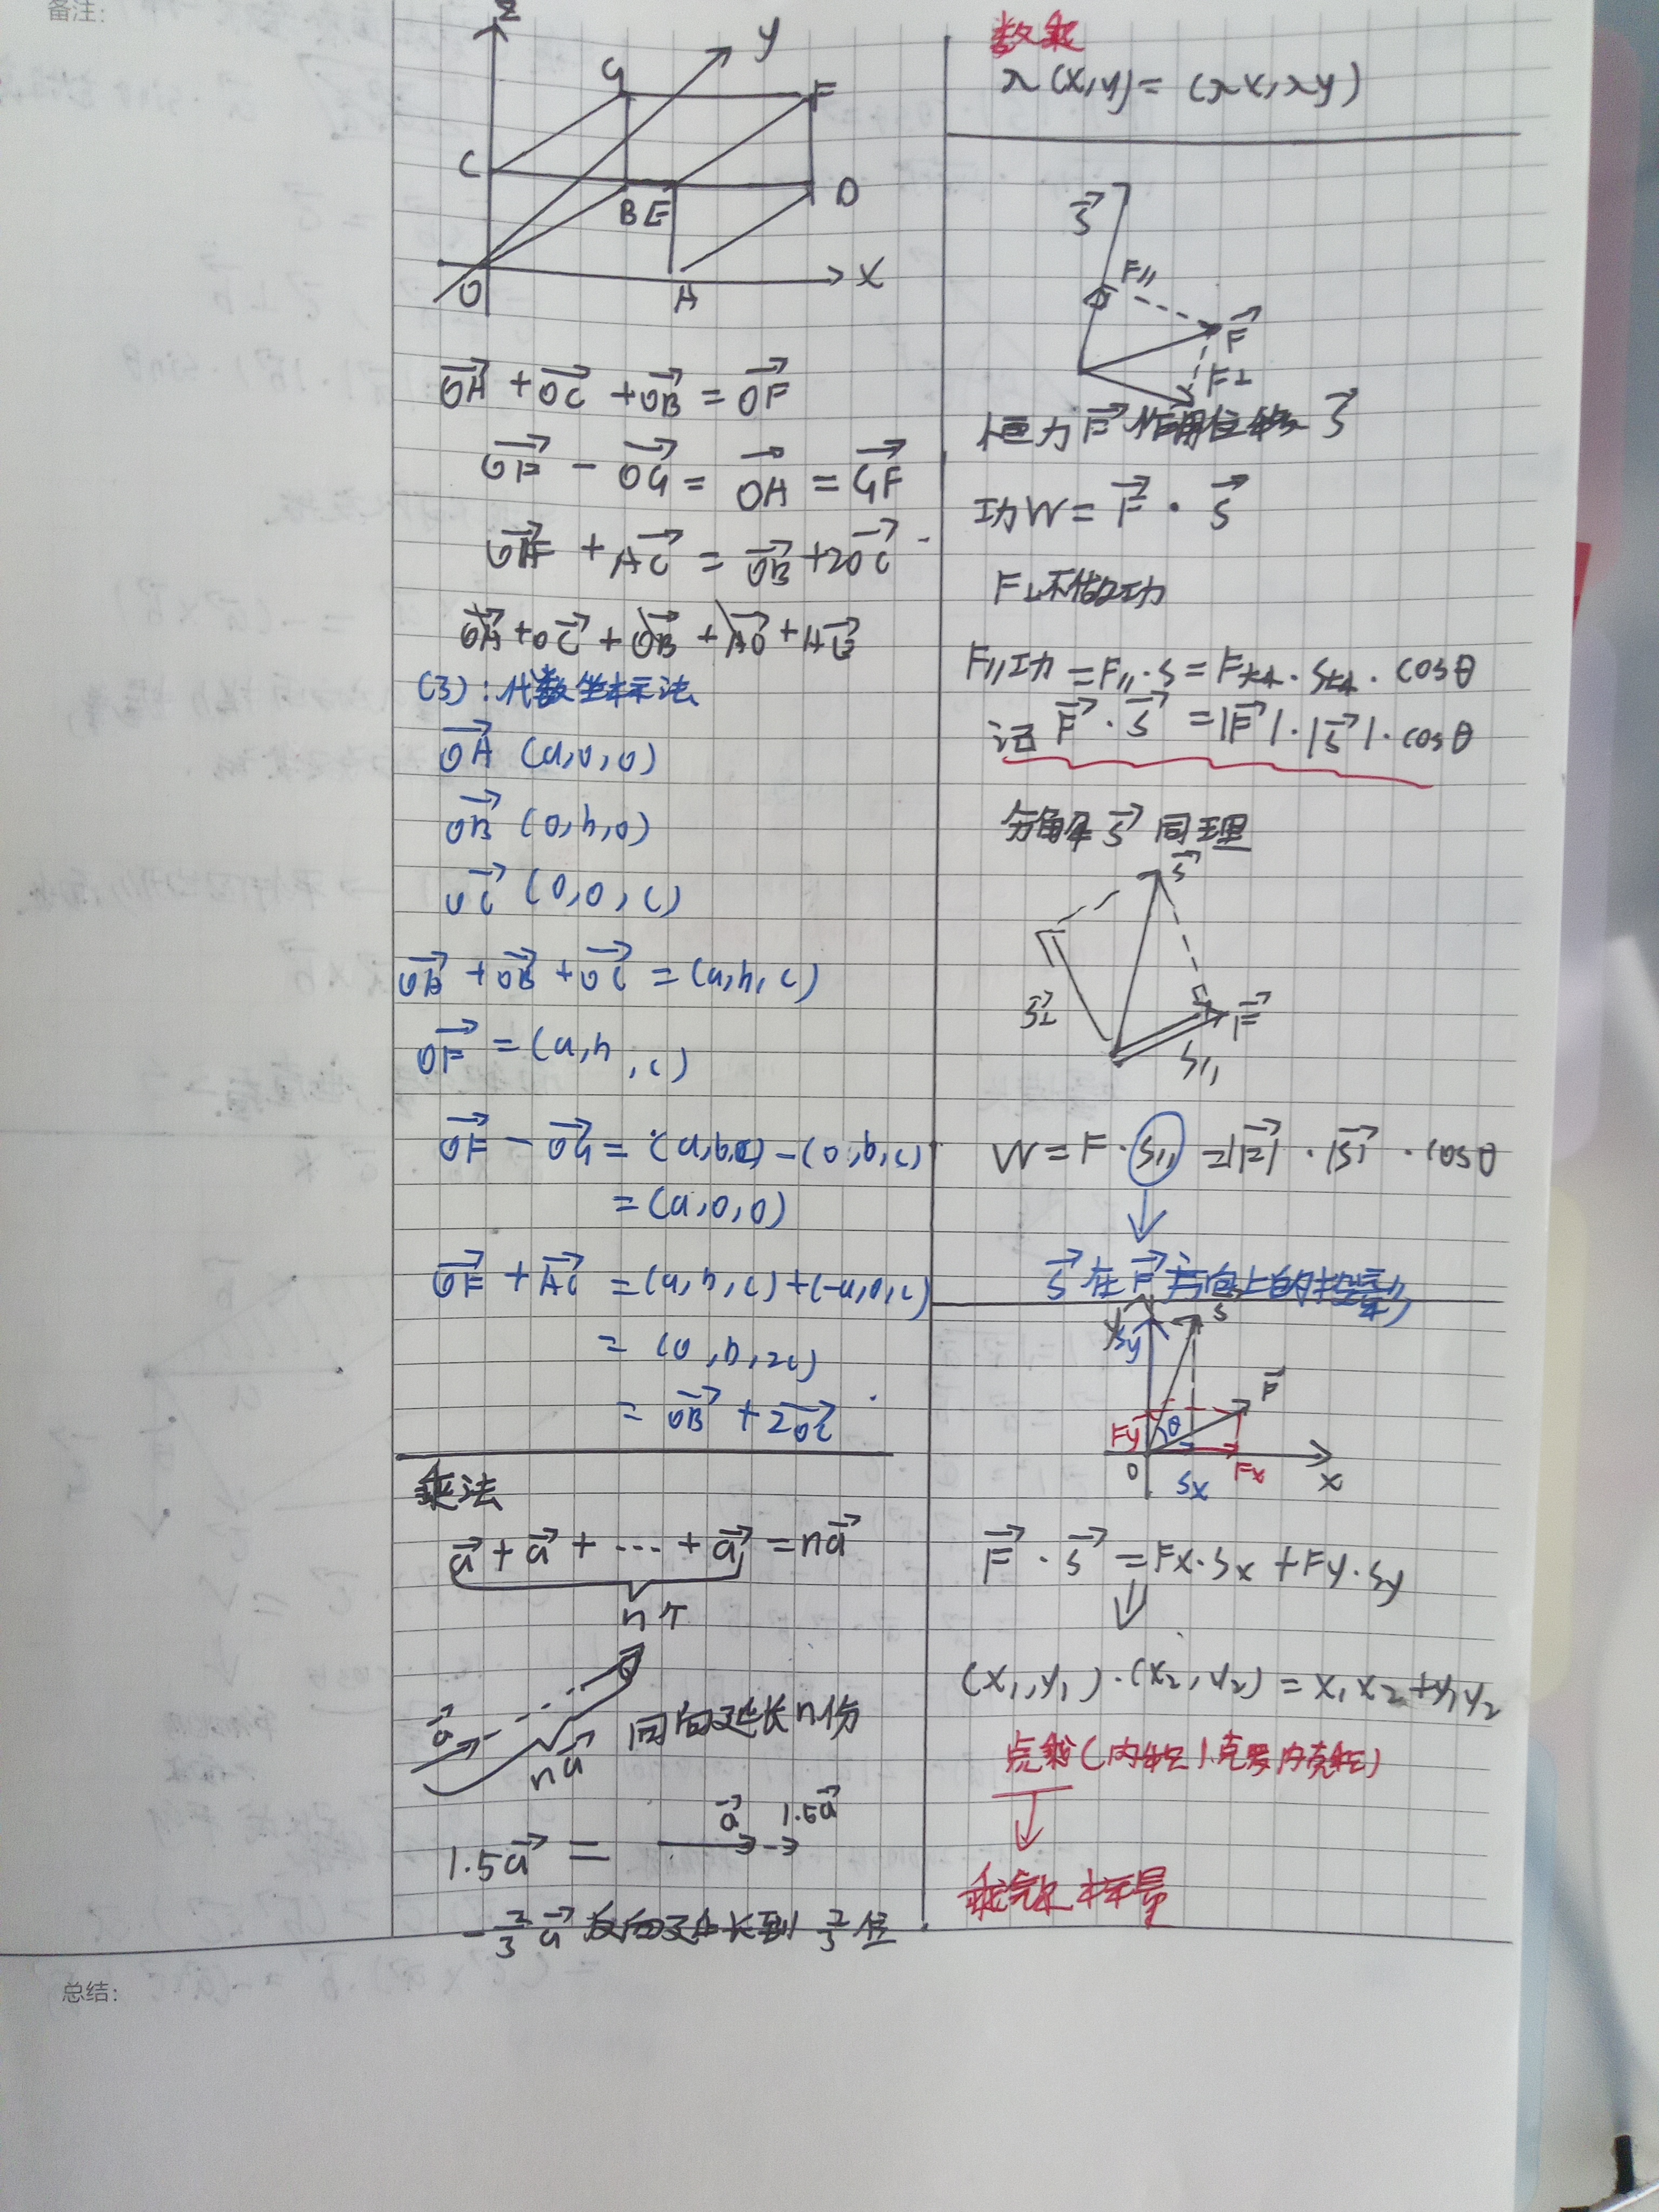 备注：
z
y
G
F
C
B E
D
O
A
x
OA + OC + OB = OF
OF - OG = OA = GF
OF + AC = OB + 2OC
OA + OC + OB + AO + AC
(3)：代数坐标示法
OA (a,0,0)
OB (0,b,0)
OC (0,0,c)
OA + OB + OC = (a,b,c)
OF = (a,b,c)
OF - OG = (a,b,c) - (0,b,c)
= (a,0,0)
OF + AC = (a,b,c) + (-a,0,c)
= (0,b,2c)
= OB + 2OC
乘法
a + a + ··· + a = na
n个
a
na
同向延长n份
1.5a =
a
1.5a
-2/3 a 反向延长到 2/3 倍
数乘
λ(x,y) = (λx,λy)
S
F//
F
F⊥
恒力F作用位移 S
功W = F · S
F⊥不做功
F//功 = F// · S = F大小 · S大小 · cosθ
记 F · S = |F| · |S| · cosθ
分解 S 同理
S
S⊥
F
S//
W = F · S// = |F| · |S| · cosθ
S 在 F 方向上的投影
y
S
Sy
F
Fy
θ
O
Sx
Fx
x
F · S = Fx·Sx + Fy·Sy
(x₁,y₁)·(x₂,y₂) = x₁x₂ + y₁y₂
点乘(内积
总结：